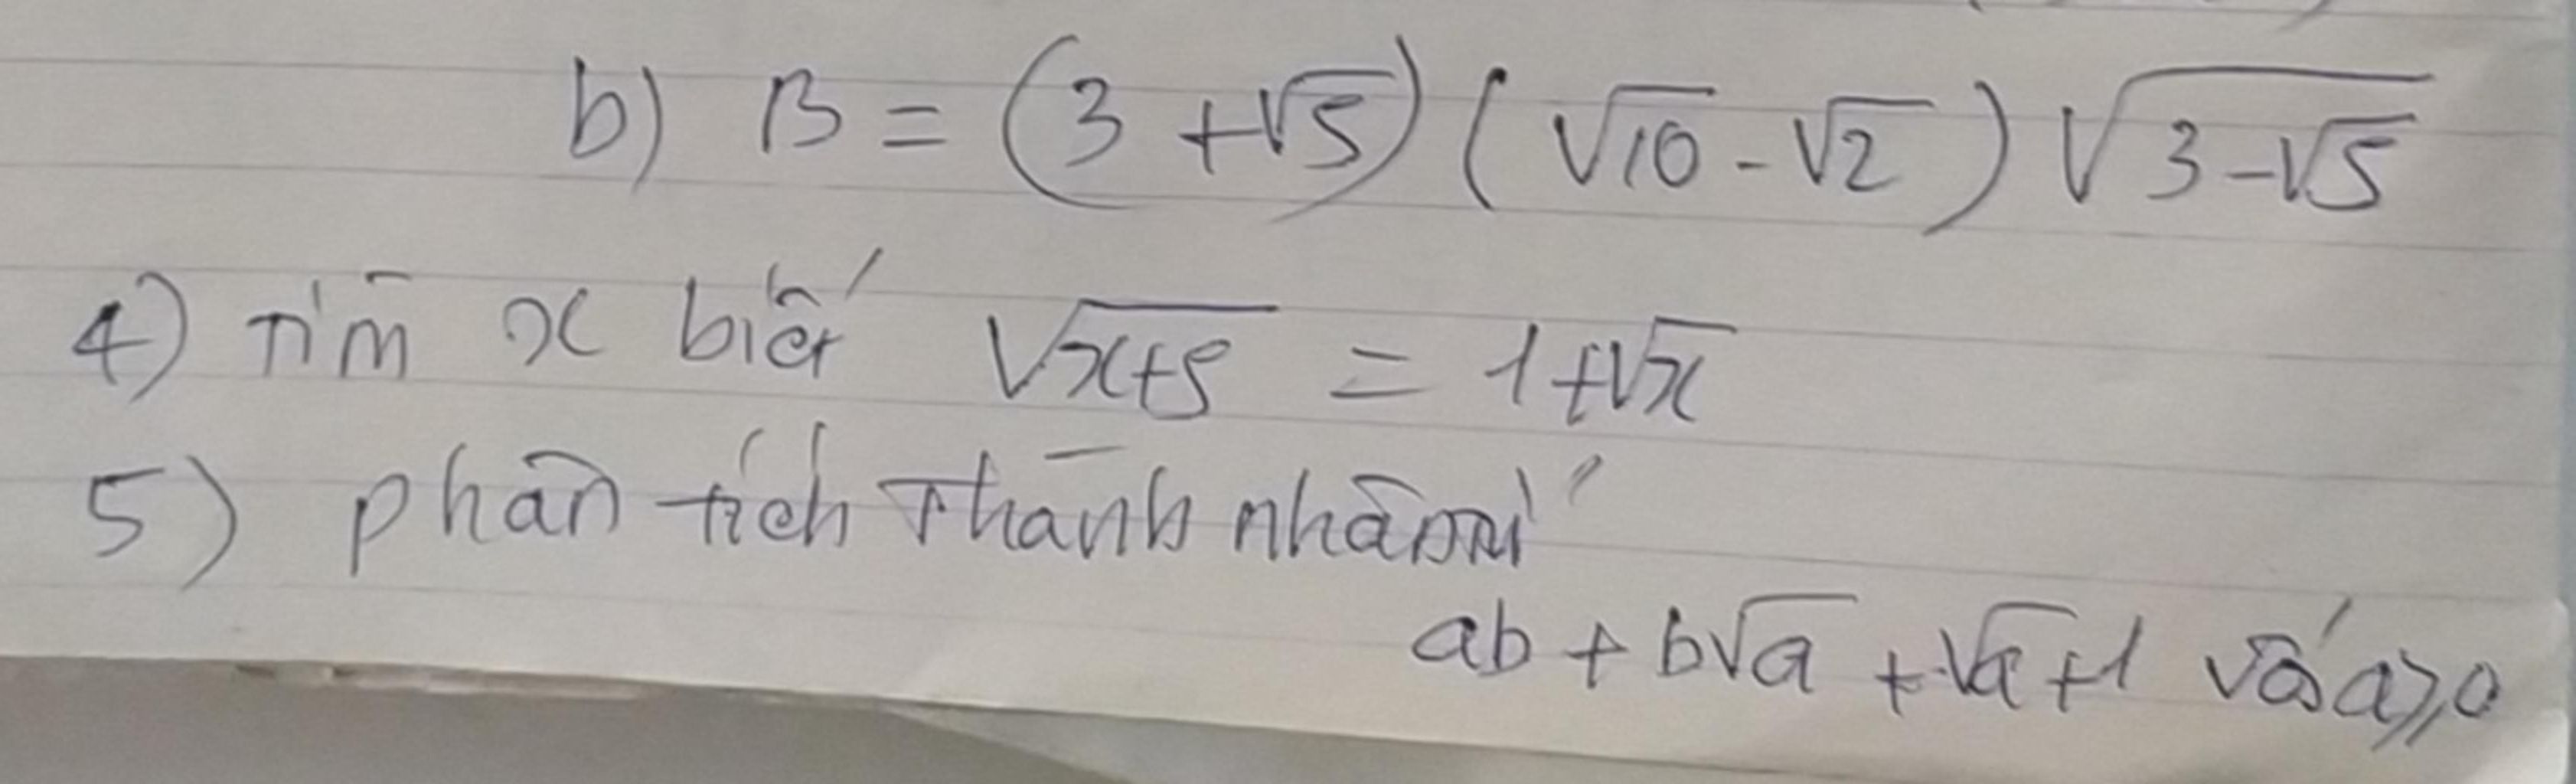 b) B = (3 + √5) (√10 - √2) √(3-√5)
4) Tìm x biết √(x+5) = 1+√x
5) phân tích Thành nhân tử
ab + b√a + √a + 1 với a ≥ 0